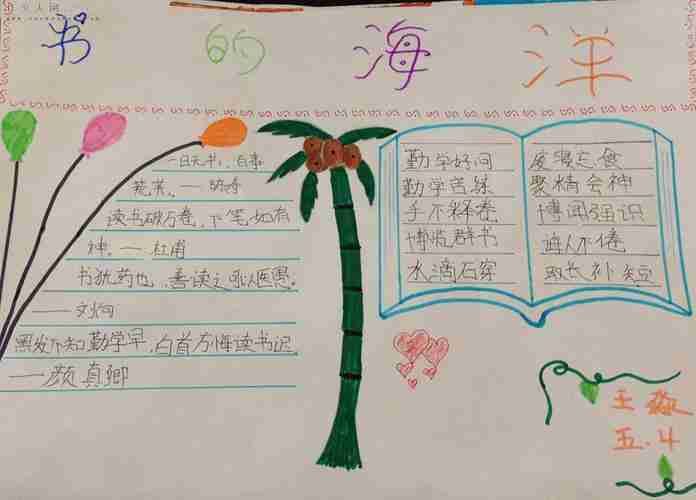 书的海洋
一日无书,百事
荒芜。——陈寿
读书破万卷,下笔如有
神。——杜甫
书犹药也,善读之可以医愚。
——
黑发不知勤学早,白首方悔读书迟
——颜真卿
勤学好问
勤学苦练
手不释卷
博览群书
水滴石穿
废寝忘食
聚精会神
博闻强识
诲人不倦
取长补短
王
五.4